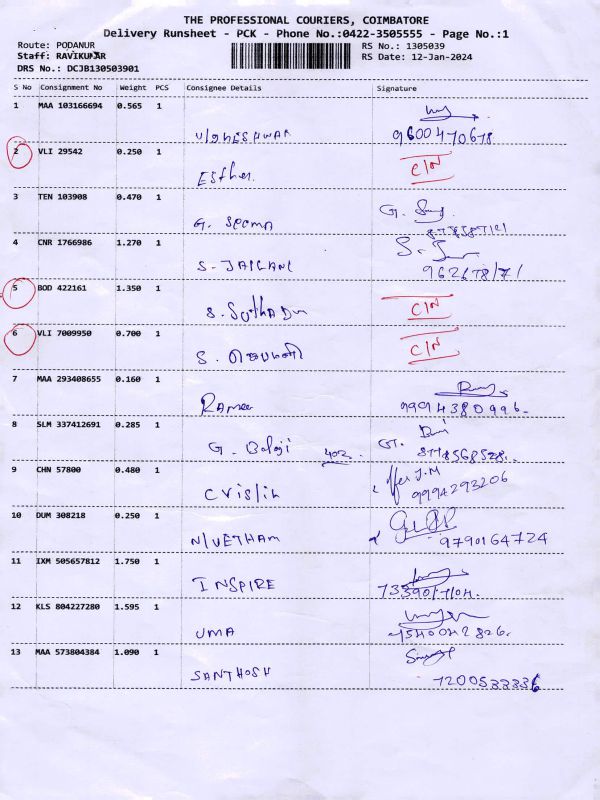 THE PROFESSIONAL COURIERS, COIMBATORE
Delivery Runsheet - PCK - Phone No.:0422-3505555 - Page No.:1
Route: PODANUR
RS No.: 1305039
Staff: RAVIKUMAR
RS Date: 12-Jan-2024
DRS No.: DCJB130503901
S No Consignment No Weight PCS Consignee Details Signature
1 MAA 103166694 0.565 1
VIGNESHWAR 9600470678
2 VLI 29542 0.250 1
Esther. C/N
3 TEN 103908 0.470 1
G. Seema G.
4 CNR 1766986 1.270 1
S. JAILANI
962678/71
5 BOD 422161 1.350 1
S. C/N
6 VLI 7009950 0.700 1
S. C/N
7 MAA 293408655 0.160 1
Ramee 9994380996.
8 SLM 337412691 0.285 1
G. Balaji 402
9 CHN 57800 0.480 1
J.M
Cvislin 9994293206
10 DUM 308218 0.250 1
NIVETHAM 9790164724
11 IXM 505657812 1.750 1
INSPIRE
12 KLS 804227280 1.595 1
UMA
13 MAA 573804384 1.090 1
SANTHOSH 7200533336